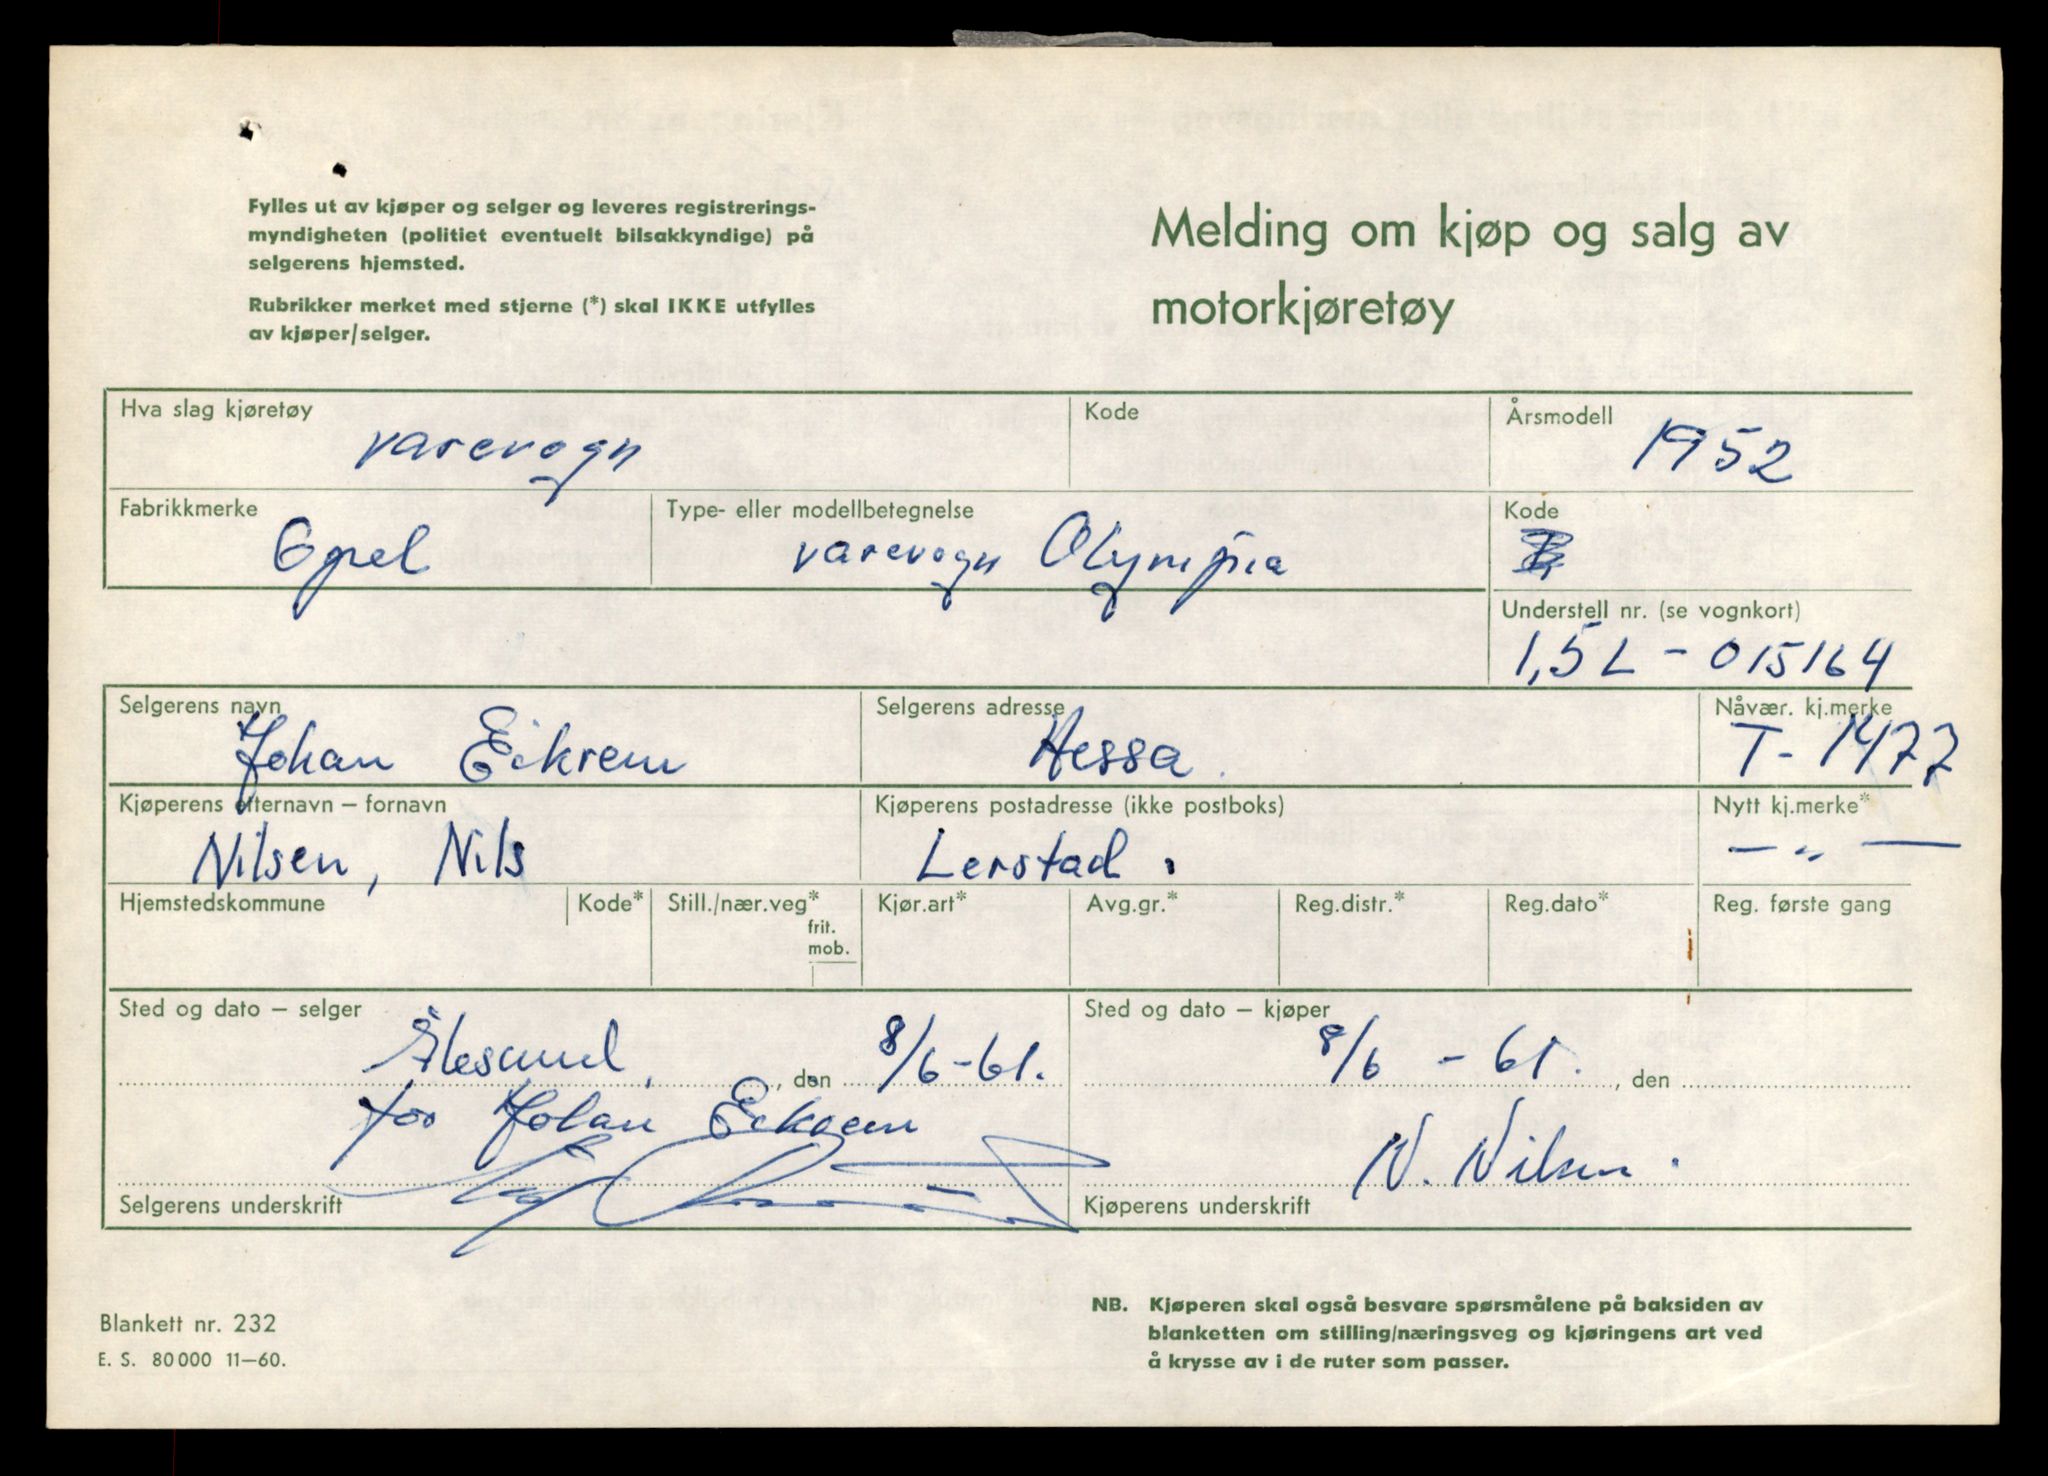 Fylles ut av kjøper og selger og leveres registrerings-
myndigheten (politiet eventuelt bilsakkyndige) på
selgerens hjemsted.
Rubrikker merket med stjerne (*) skal IKKE utfylles
av kjøper/selger.
Melding om kjøp og salg av
motorkjøretøy
Hva slag kjøretøy
varevogn
Kode
Årsmodell
1952
Fabrikkmerke
Opel
Type- eller modellbetegnelse
varevogn Olympia
Kode
Understell nr. (se vognkort)
1,5 L - 015164
Selgerens navn
Johan Eikrem
Selgerens adresse
Hessa.
Nåvær. kj.merke
T- 1477
Kjøperens etternavn – fornavn
Nilsen, Nils
Kjøperens postadresse (ikke postboks)
Lerstad.
Nytt kj.merke*
— „ —
Hjemstedskommune
Kode*
Still./nær.veg*
frit.
mob.
Kjør.art*
Avg.gr.*
Reg.distr.*
Reg.dato*
Reg. første gang
Sted og dato – selger
Ålesund, , den 8/6-61.
for Johan Eikrem
Selgerens underskrift
Sted og dato – kjøper
8/6 - 61. , den
N. Nilsen.
Kjøperens underskrift
Blankett nr. 232
E. S. 80000 11–60.
NB. Kjøperen skal også besvare spørsmålene på baksiden av
blanketten om stilling/næringsveg og kjøringens art ved
å krysse av i de ruter som passer.